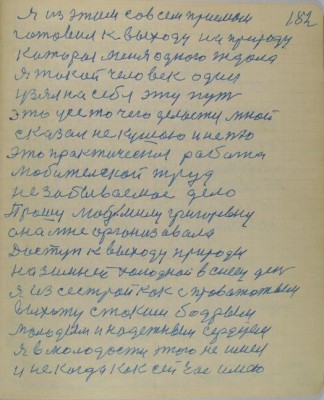 182
я из этим совсем приемом
готовил к выходу на природу
которая меня одного ждала
я такой человек один
взял на себя эту пут
это усе то чего делается мной
сказал не кушаю и не пю
это практическая работа
любителской труд
не забываемае дело
Прошу Григоревну
она мне организавала
Доступ к выходу природы
на зимней холодной в снегу день
я из сестрой как с провожатым
выхожу с таким бодрым
молодым и надежным сердцем
я в молодости этого не имел
и некогда как сейчас имею